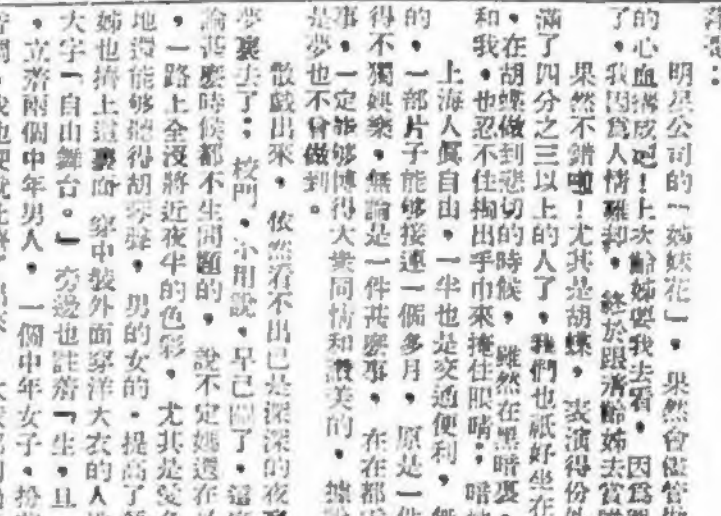 明星公司的「姊妹花」，果然會儘管
的心血搆成吧！上次齡姊要我去看，因爲
了，我因爲人情難却，終於跟齡姊去
果然不錯啦！尤其是胡蝶，表演得份外
滿了四分之三以上的人了，我們也祇好坐在
，在胡蝶做到悲切的時候，雖然在黑暗裏，
和我，也忍不住掏出手巾來掩住眼睛，暗
上海人眞自由，一半也是交通便利，
的，一部片子能够接連一個多月，原是一件
得不獨娛樂，無論是一件甚麽事，在在都
事，一定能够博得大衆同情和讚美的，據
是夢也不會做到。
散戲出來，依然看不出已是深深的夜
夢裏去了；校門，不用說，早已關了，這
論甚麽時候都不生問題的，說不定她還在
，一路上全沒將近夜半的色彩，尤其是
地還能够聽得胡琴聲，男的女的，提高了
姊也擠上這裏面，穿中裝外面穿洋大衣的人
大字「自由舞台。」旁邊也註着「生，旦
，立着兩個中年男人，一個中年女子，扮